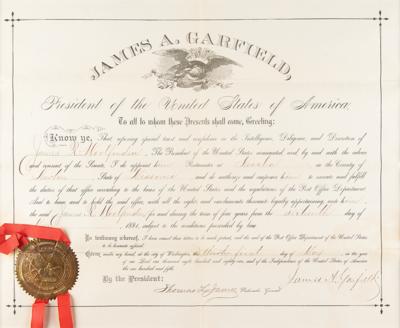 JAMES A. GARFIELD,
President of the United States of America;
To all to whom these Presents shall come, Greeting:
Know ye, That reposing special trust and confidence in the Intelligence, Diligence, and Discretion of
James The President of the United States nominated and, by and with the advice
and consent of the Senate, did appoint him Postmaster at in the County of
State of and do authorize and empower him to execute and fulfill
the duties of that office according to the laws of the United States and the regulations of the Post Office Department
And to have and to hold the said office, with all the rights and emoluments thereunto legally appertaining unto him
the said James for and during the term of four years from the day of
1881, subject to the conditions prescribed by law
In testimony whereof, I have caused these letters to be made patent, and the seal of the Post Office Department of the United States
to be hereunto affixed.
Given under my hand, at the city of Washington, the first day of in the year
of our Lord one thousand eight hundred and eighty-one, and of the Independence of the United States of America
the one hundred and fifth.
By the President: James A. Garfield
Thomas L. James Postmaster General